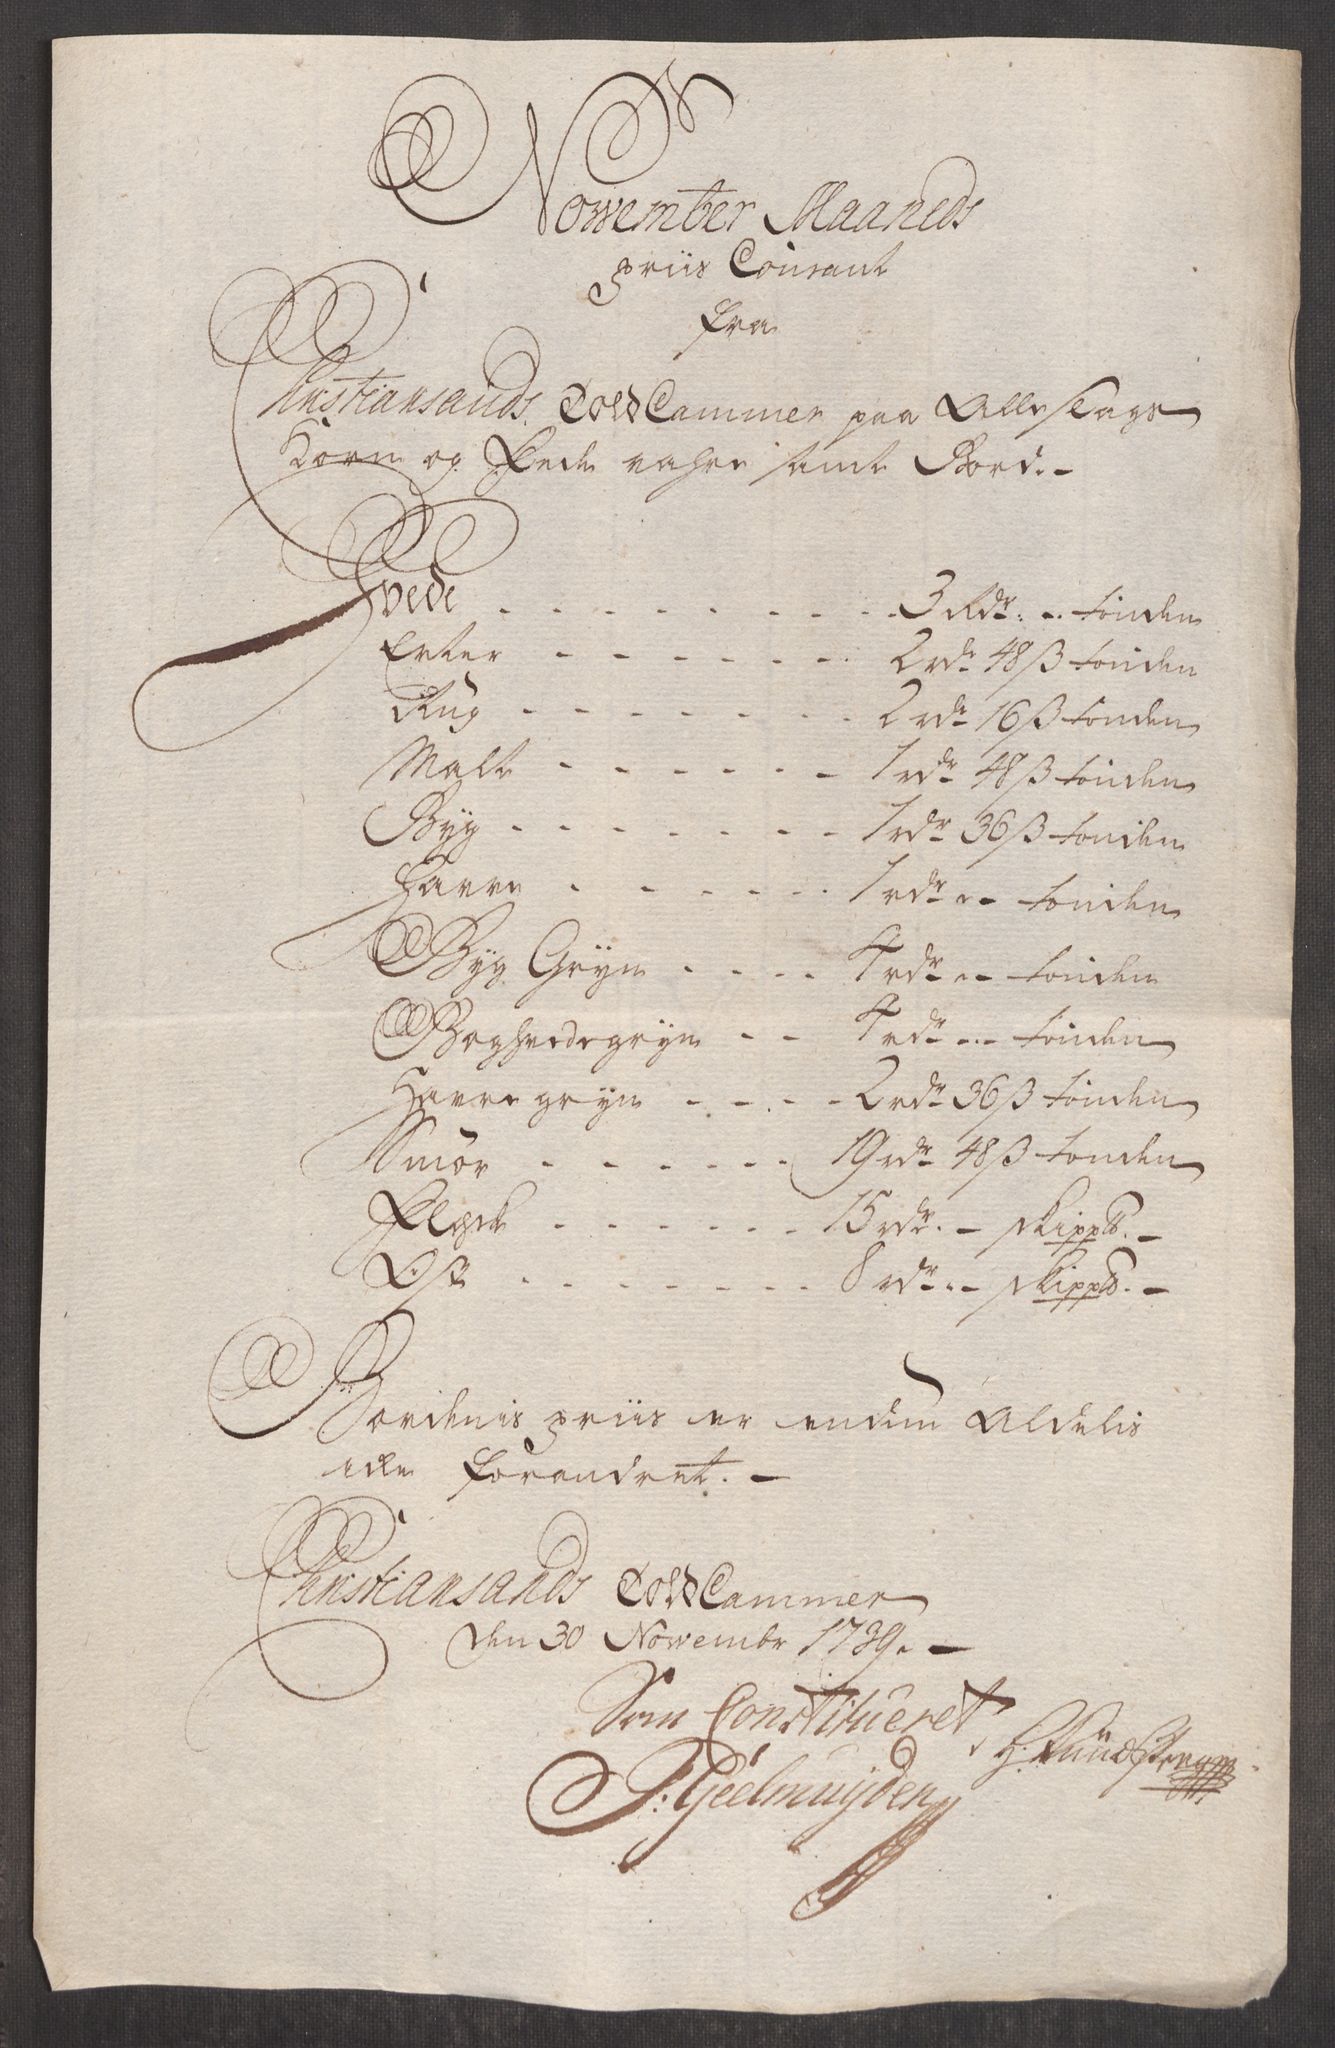 Nowember Maaneds
priis Courant
fra
Christiansands Told Cammer paa Alle slags
Korn og Fede vahre samt Bord. -
Hvede - - - - - - - - 3 Rdr: - tönden
Erter - - - - - - 2 rdr 48 β tönden
Rug - - - - - - 2 rdr 16 β tönden
Malt - - - - - - 1 rdr 48 β tönden
Byg - - - - - - - 1 rdr 36 β tönden
Havre - - - - - - 1 rdr - - tönden
Byg Gryn - - - - 4 rdr - - tönden
Boghvedegryn - - 4 rdr - - tönden
Havre gryn - - - - 2 rdr 36 β tönden
Smör - - - - - - 19 rdr 48 β tönden
Flesk - - - - - - 15 rdr. - skippd. -
Ost - - - - - - - 8 rdr. - skippd. -
Bordenis priis er endnu Aldelis
icke forandret. -
Christiansands Told Cammer
den 30 Nowembr 1739. -
Som Constitueret
Gëelmuijden